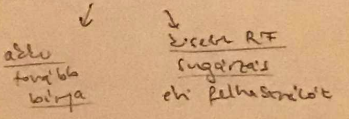 akku
tovább
bírja
kisebb RF
sugárzás
éri felhasználót